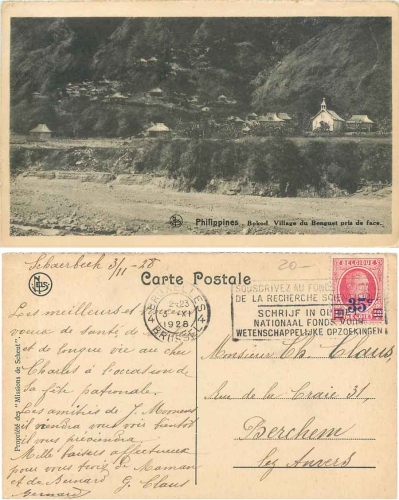 Philippines. Bokod. Village du Benguet pris de face.
Schaerbeek 3/11-28
20-
Carte Postale
Nels
Propriété des "Missions de Scheut".
BRUXELLES 4
1928
BRUSSEL 4
SOUSCRIVEZ AU FONDS
DE LA RECHERCHE
SCHRIJF IN OP
NATIONAAL FONDS VOOR
WETENSCHAPPELIJKE OPZOEKINGEN
BELGIQUE
35c
Les meilleurs et
voeux de santé de
et de longue vie au cher
Charles à l'occasion de
sa fête patronale.
Les amitiés de J. Moment
il viendra vous voir bientôt
et vous préviendra
Mille baisers affectueux
pour vous trois de Maman
et de Bernard G. Claus
Bernard
Monsieur Ch. Claus,
Rue de la Craie 31,
Berchem
lez Anvers